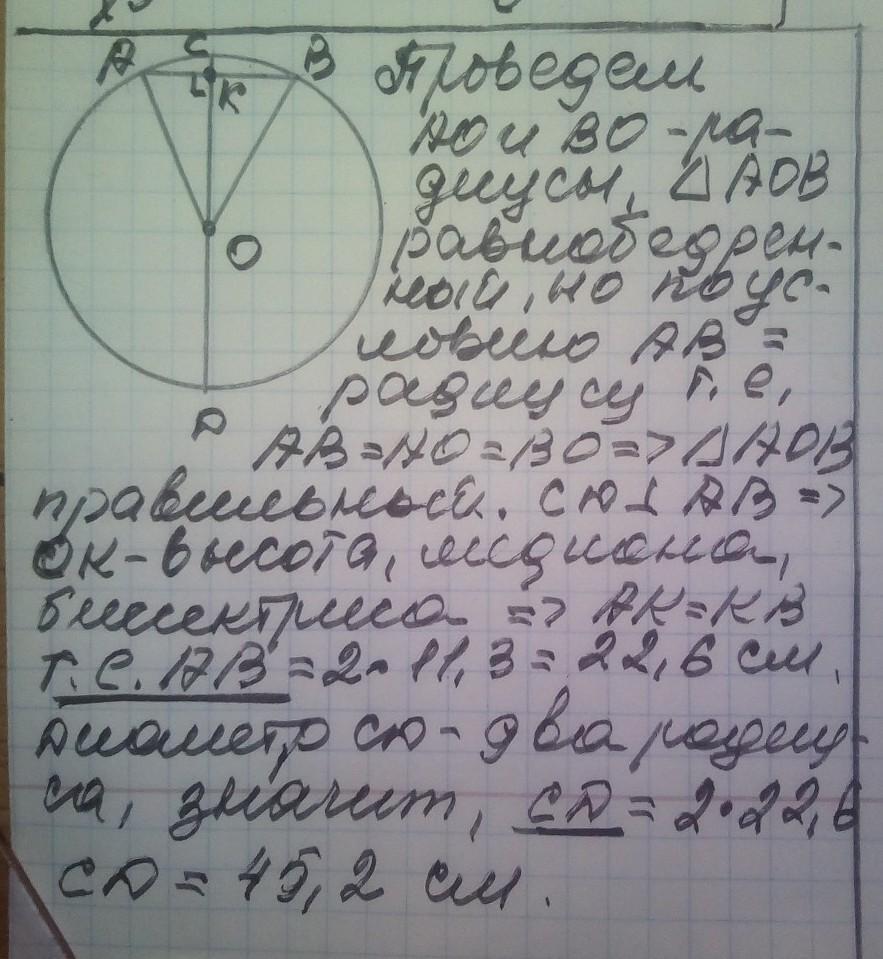 A C B
K
O
D
Проведем
AO и BO - ра-
диусы, △ AOB
равнобедрен-
ный, но по ус-
ловию AB =
радиусу т.е.
AB = AO = BO => △ AOB
правильный. CD ⊥ AB =>
OK - высота, медиана,
биссектриса => AK = KB
т.е. AB = 2·11,3 = 22,6 см.
Диаметр CD - два радиу-
са, значит, CD = 2·22,6
CD = 45,2 см.